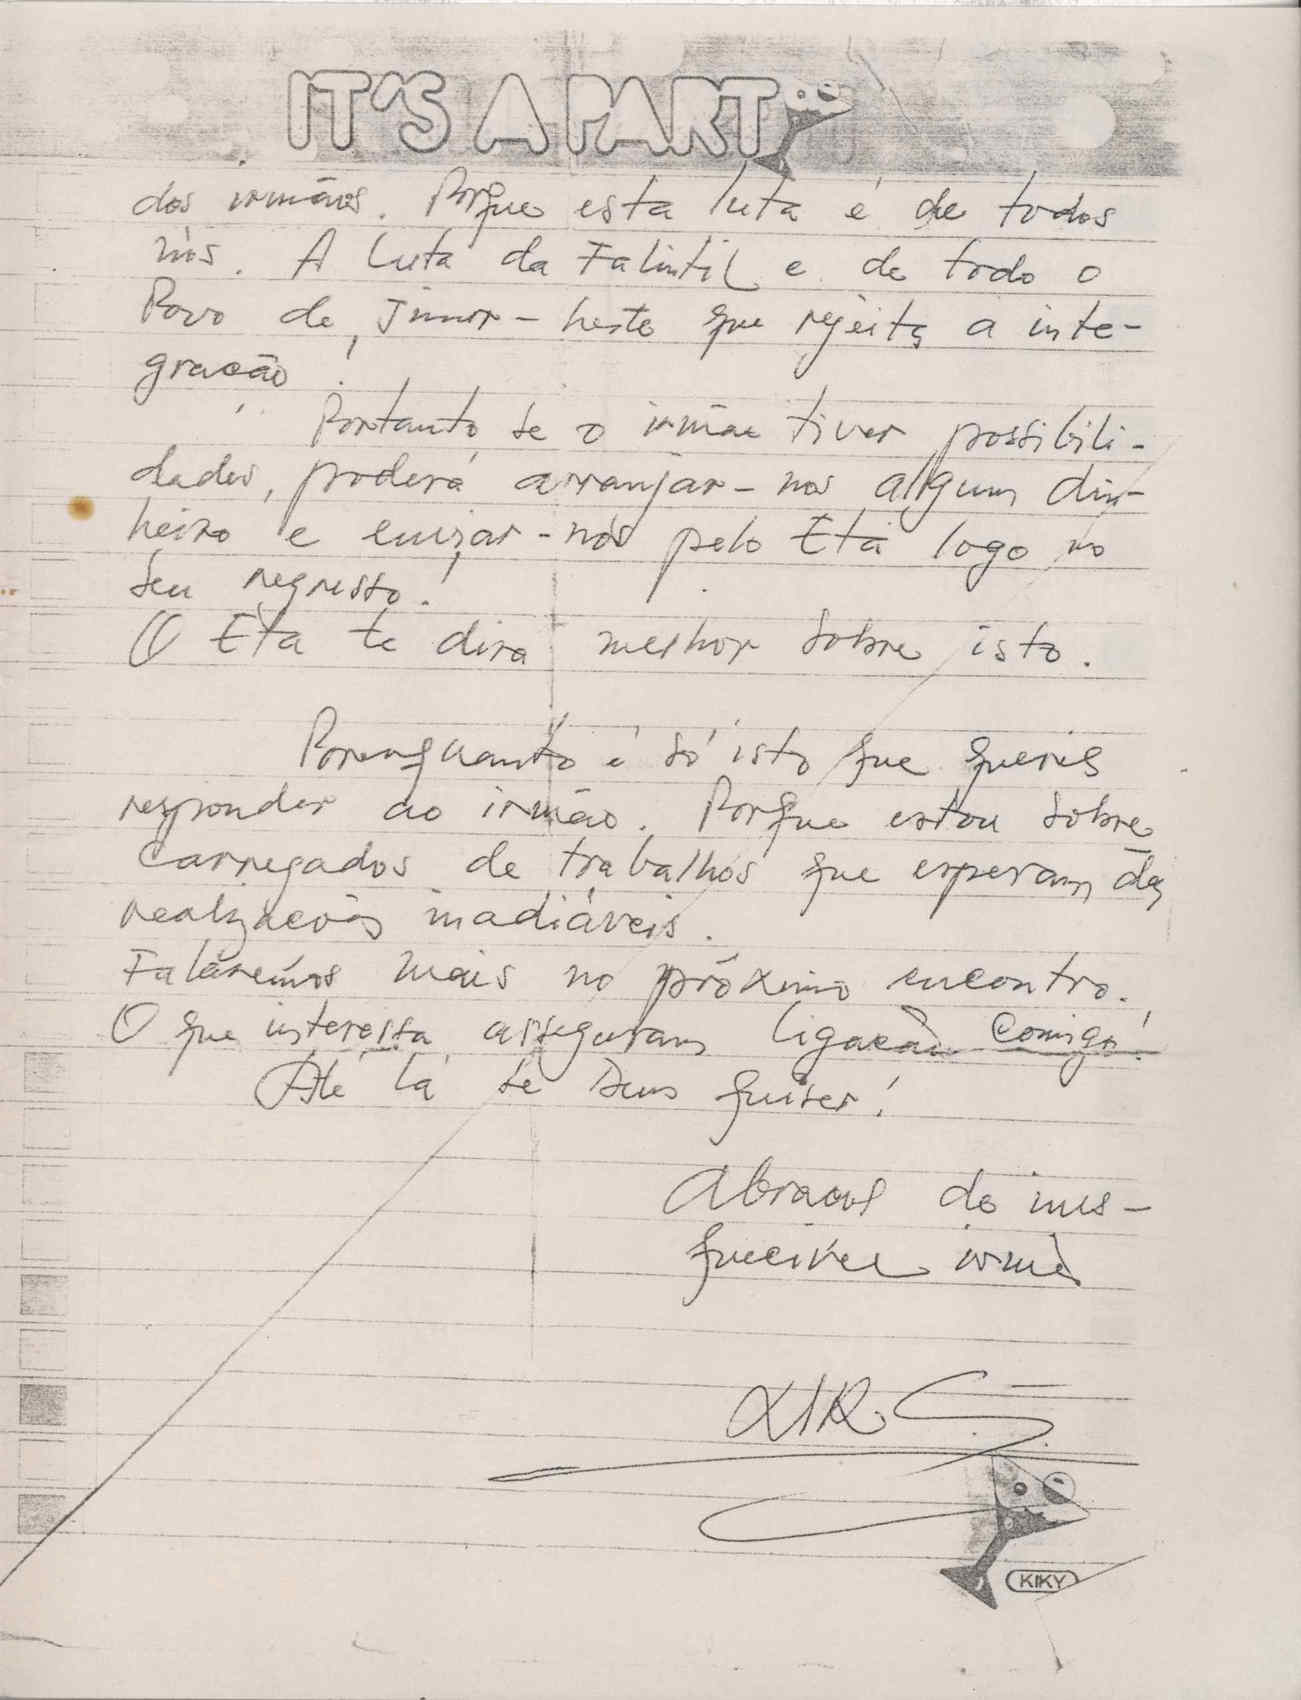 IT'S A PARTY
dos irmãos. Porque esta luta é de todos
nós. A luta da Falintil e de todo o
Povo de Timor-leste que rejeita a inte-
gração!
Portanto, se o irmão tiver possibili-
dades, poderá arranjar-nos algum din-
heiro e enviar-nos pelo Eta logo no
seu regresso!
O Eta te dirá melhor sobre isto.
Porenquanto é só isto que queria
responder ao irmão. Porque estou sobre
carregados de trabalhos que esperam das
realizacões inadiáveis.
Falaremos mais no próximo encontro.
O que interessa asseguram ligacão comigo!
Até lá se Deus quiser!
Abracos do ines-
quecivel irmão
KIKY